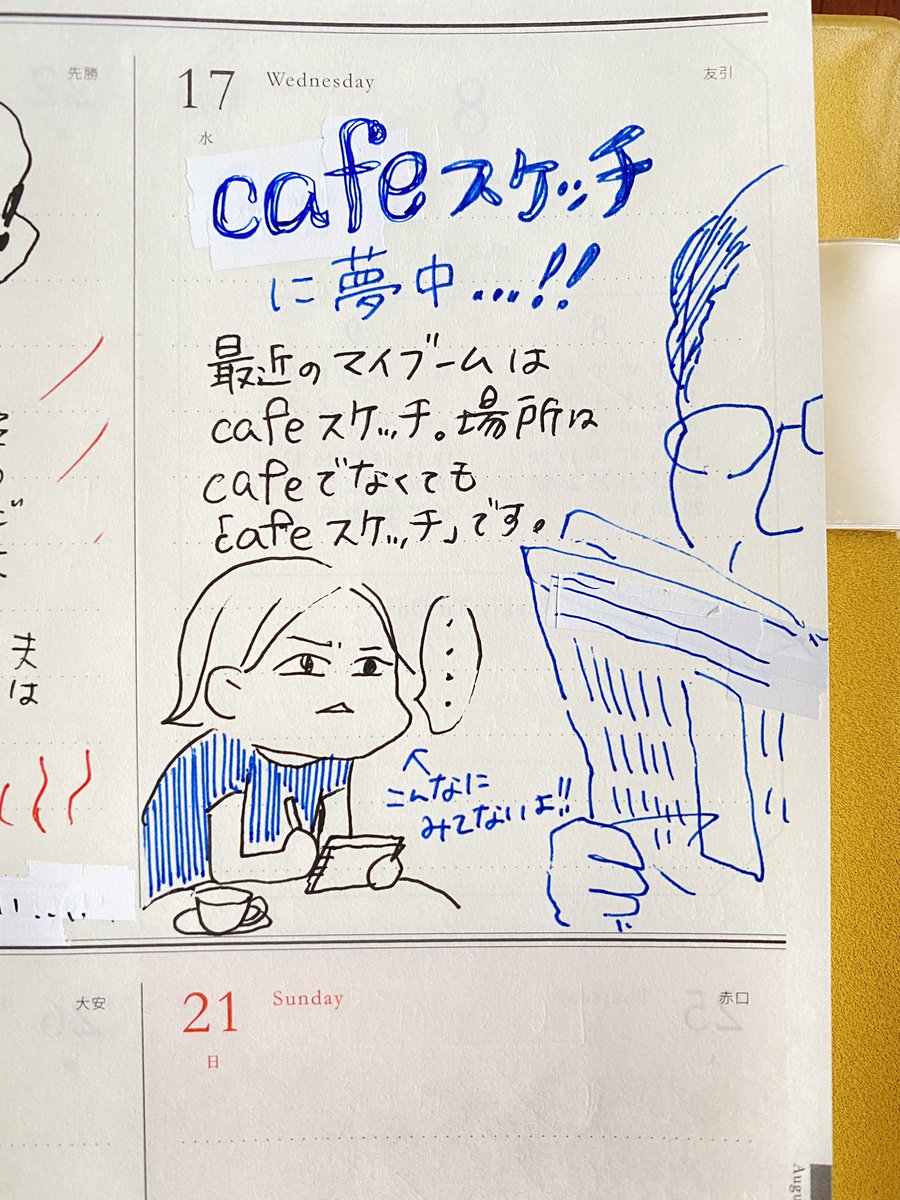 先勝
17 Wednesday 友引
水
cafeスケッチ
に夢中...!!
最近のマイブームは
cafeスケッチ。場所は
cafeでなくても
「cafeスケッチ」です。
.....
こんなに
みてないよ!!
夫
は
大安
21 Sunday 赤口
日